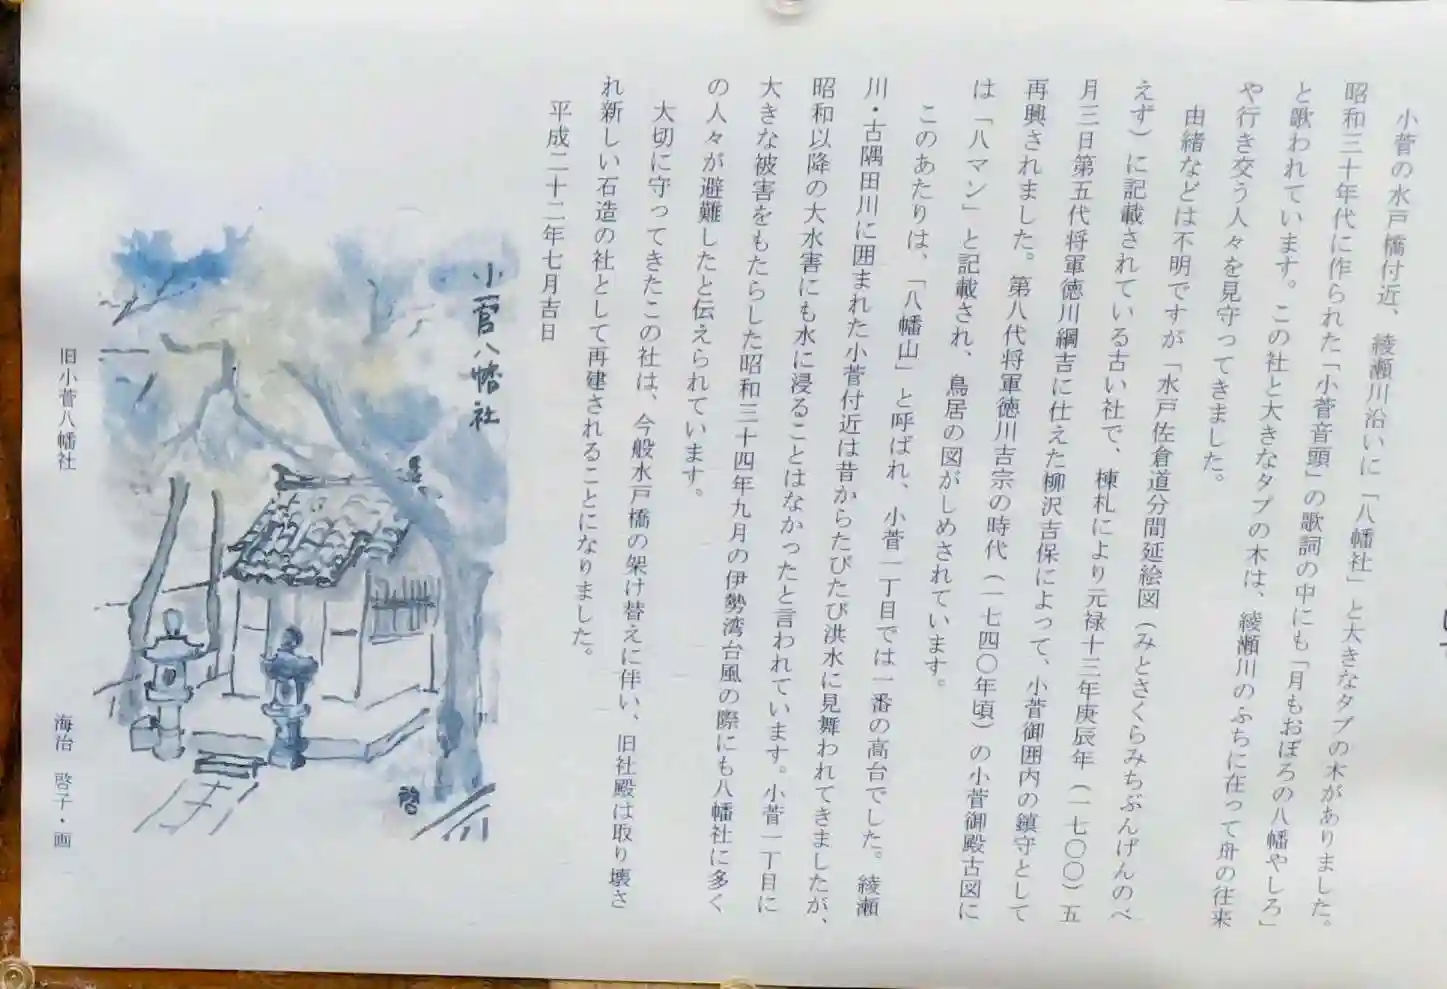 小菅の水戸橋付近、綾瀬川沿いに「八幡社」と大きなタブの木がありました。
昭和三十年代に作られた「小菅音頭」の歌詞の中にも「月もおぼろの八幡やしろ」
と歌われています。この社と大きなタブの木は、綾瀬川のふちに在って舟の往来
や行き交う人々を見守ってきました。
由緒などは不明ですが「水戸佐倉道分間延絵図（みとさくらみちぶんげんのべ
えず）に記載されている古い社で、棟札により元禄十三年庚辰年（一七〇〇）五
月三日第五代将軍徳川綱吉に仕えた柳沢吉保によって、小菅御囲内の鎮守として
再興されました。第八代将軍徳川吉宗の時代（一七四〇年頃）の小菅御殿古図に
は「八マン」と記載され、鳥居の図がしめされています。
このあたりは、「八幡山」と呼ばれ、小菅一丁目では一番の高台でした。綾瀬
川・古隅田川に囲まれた小菅付近は昔からたびたび洪水に見舞われてきましたが、
昭和以降の大水害にも水に浸ることはなかったと言われています。小菅一丁目に
大きな被害をもたらした昭和三十四年九月の伊勢湾台風の際にも八幡社に多く
の人々が避難したと伝えられています。
大切に守ってきたこの社は、今般水戸橋の架け替えに伴い、旧社殿は取り壊さ
れ新しい石造の社として再建されることになりました。
平成二十二年七月吉日
小菅八幡社
啓
旧小菅八幡社
海治 啓子・画